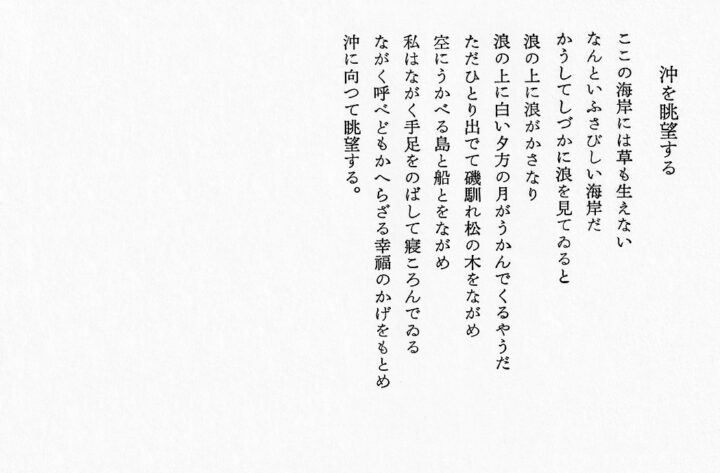 沖を眺望する
ここの海岸には草も生えない
なんといふさびしい海岸だ
かうしてしづかに浪を見てゐると
浪の上に浪がかさなり
浪の上に白い夕方の月がうかんでくるやうだ
ただひとり出でて磯馴れ松の木をながめ
空にうかべる島と船とをながめ
私はながく手足をのばして寝ころんでゐる
ながく呼べどもかへらざる幸福のかげをもとめ
沖に向つて眺望する。